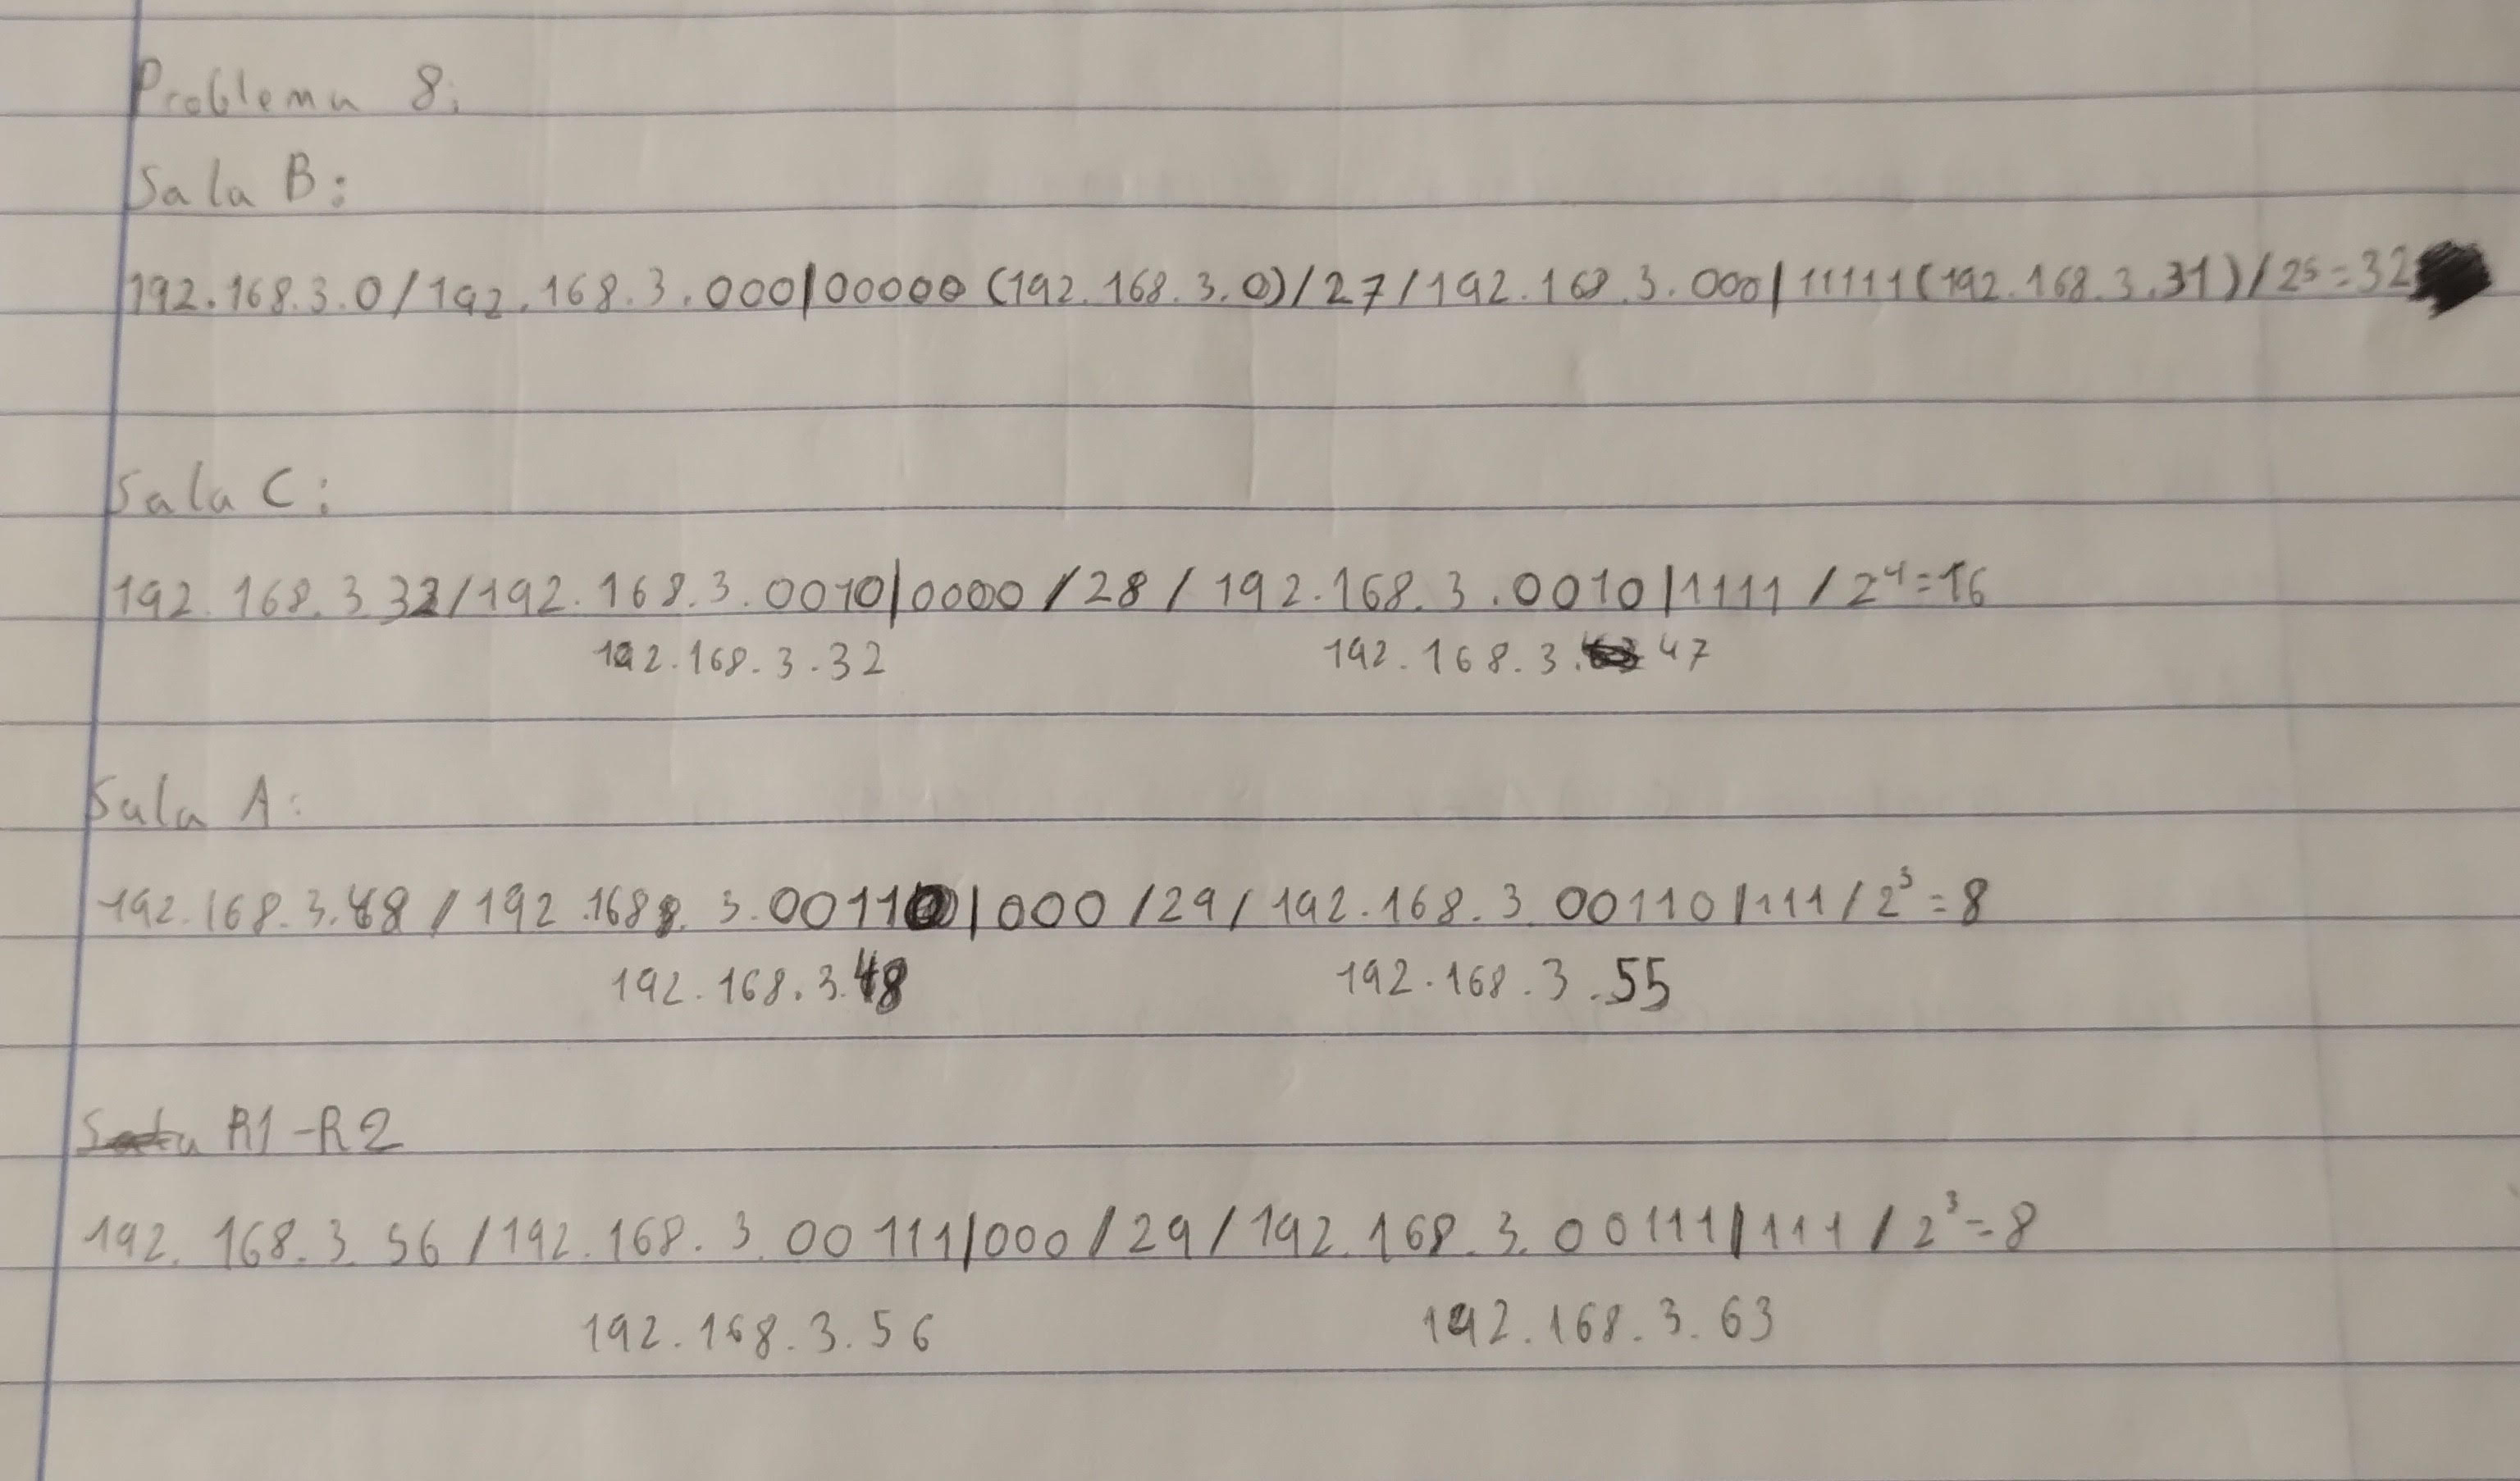 Problema 8:
Sala B:
192.168.3.0/192.168.3.000|00000 (192.168.3.0)/27/192.168.3.000|11111(192.168.3.31)/2⁵=32
Sala C:
192.168.3.32/192.168.3.0010|0000/28/192.168.3.0010|1111/2⁴=16
192.168.3.32 192.168.3.47
Sala A:
192.168.3.48/192.168.3.00110|000/29/192.168.3.00110|111/2³=8
192.168.3.48 192.168.3.55
R1-R2
192.168.3.56/192.168.3.00111|000/29/192.168.3.00111|111/2³=8
192.168.3.56 192.168.3.63